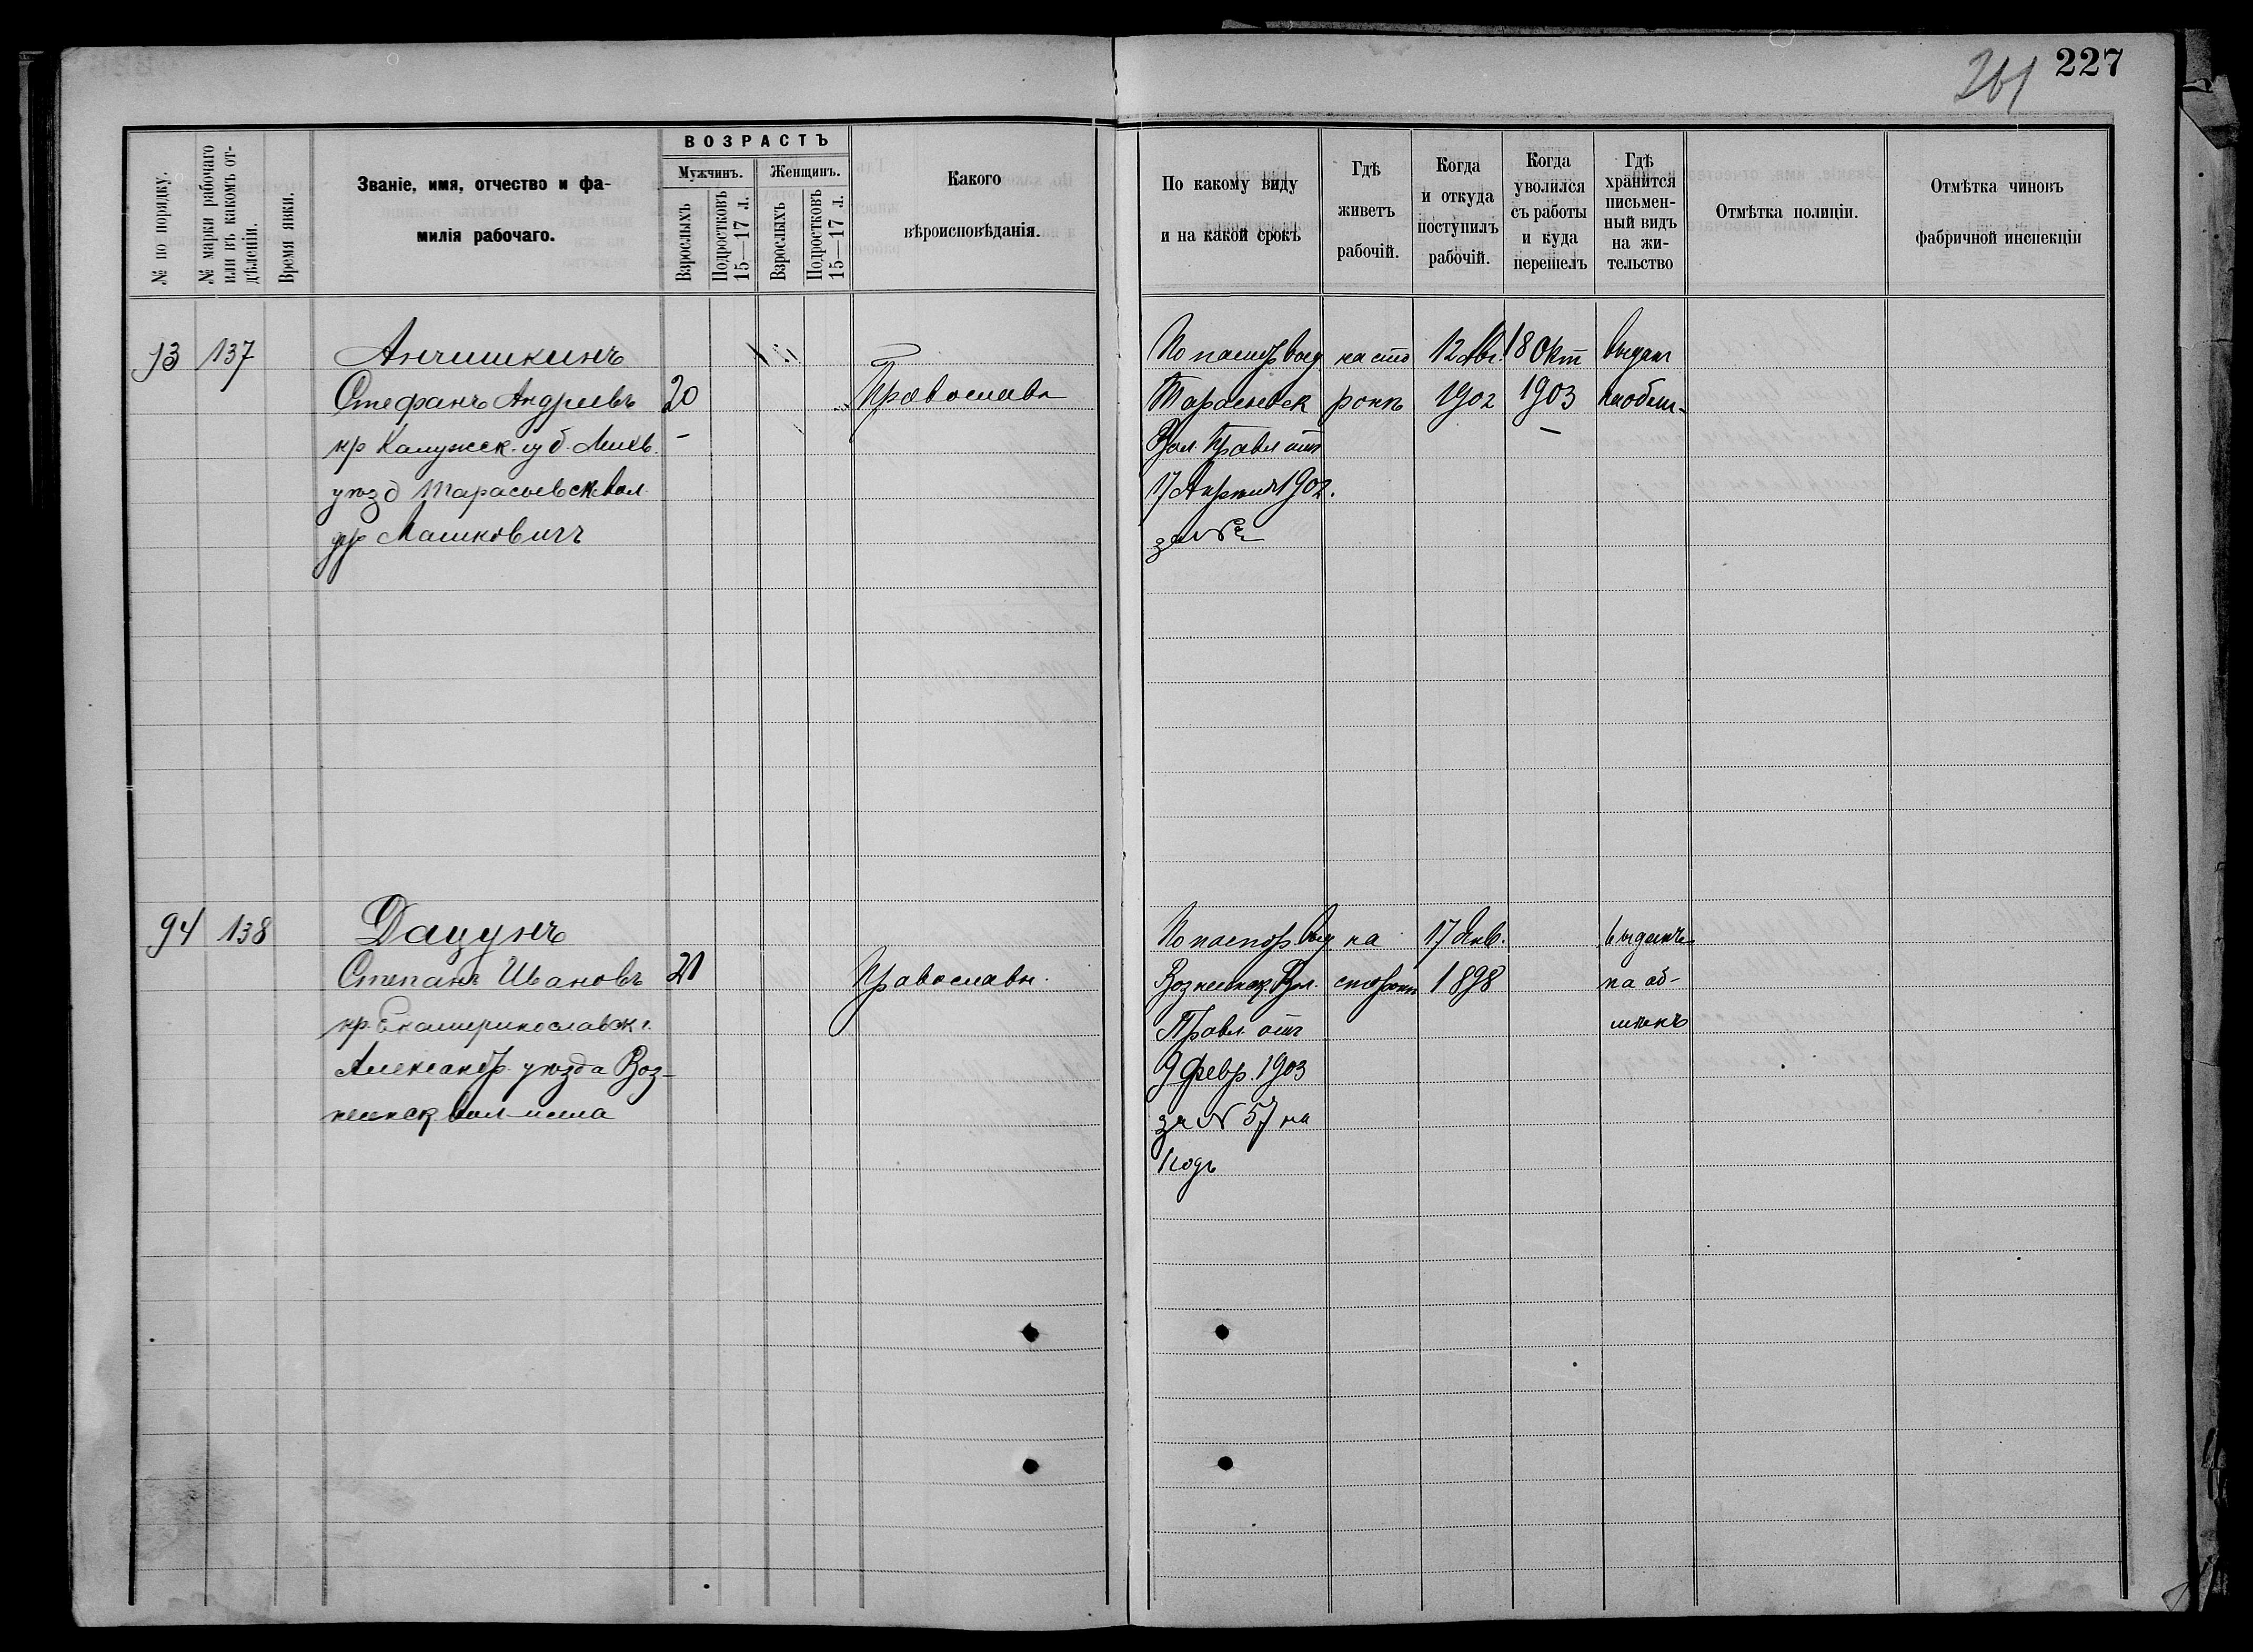 227
261
№ по порядку.
№ марки рабочаго или въ какомъ отдѣленіи.
Время явки.
Званіе, имя, отчество и фа-
милія рабочаго.
ВОЗРАСТЪ
Мужчинъ.
Женщинъ.
Взрослыхъ
Подростковъ 15—17 л.
Взрослыхъ
Подростковъ 15—17 л.
Какого
вѣроисповѣданія.
По какому виду
и на какой срокъ
Гдѣ
живетъ
рабочій.
Когда
и откуда
поступилъ
рабочій.
Когда
уволился
съ работы
и куда
перешелъ
Гдѣ
хранится
письмен-
ный видъ
на жи-
тельство
Отмѣтка полиціи.
Отмѣтка чиновъ
фабричной инспекціи
137 Анчишкинъ
Стефанъ Андреевъ 20 Православн
кр Калужск. губ.
уѣзд Тарасьевск вол.
По паспор выд на сто 12 Авг. 18 Окт выдан
рокѣ 1902 1903
Вол. Правл отъ
17 Апреля 1902.
за №
94 138 Дацунъ
Степанъ Ивановъ 21 Православн.
кр. Екатеринославск г.
Александр. уѣзда Воз-
несенск вол села
По паспор выд на 17 Янв. выданъ
Вознесенск Вол. сторонѣ 1898 на об-
Правл. отъ мѣнъ
9 Февр. 1903
за № 57 на
1 годъ